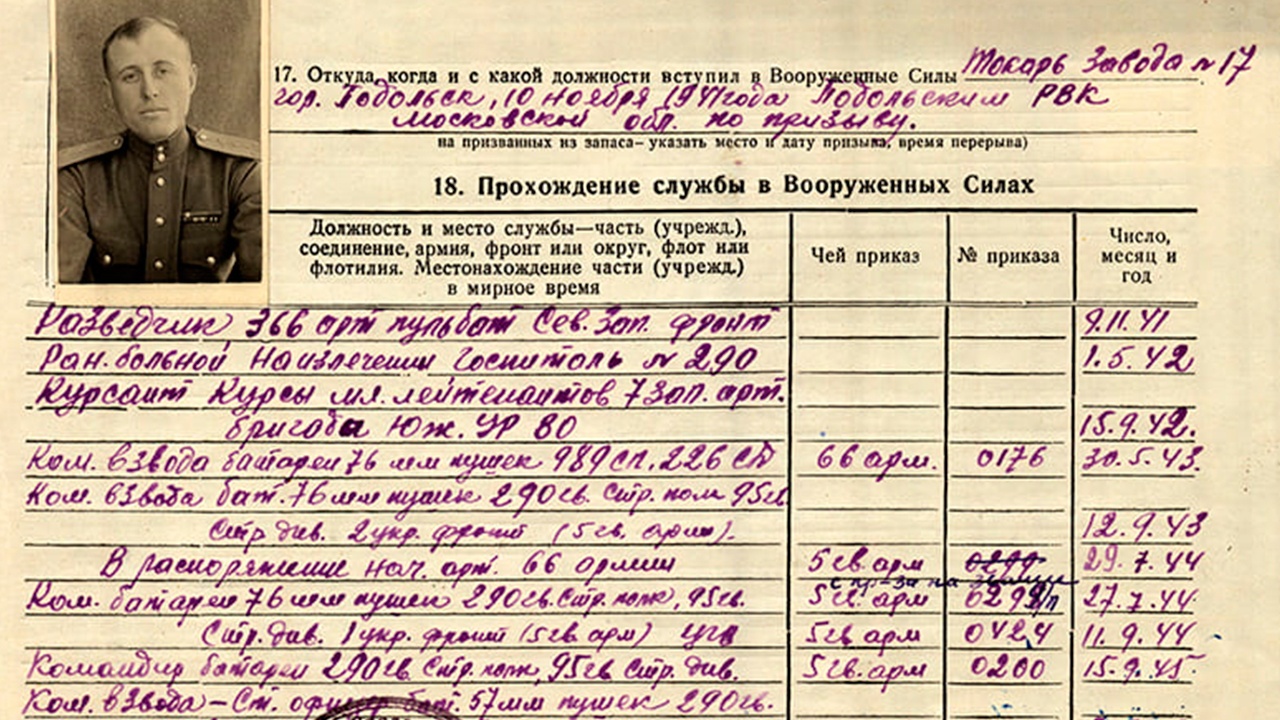 17. Откуда, когда и с какой должности вступил в Вооруженные Силы Токарь Завода №17
гор. Подольск, 10 ноября 1941 года Подольским РВК
Московской обл. по призыву.
на призванных из запаса— указать место и дату призыва, время перерыва)
18. Прохождение службы в Вооруженных Силах
Должность и место службы—часть (учрежд.), соединение, армия, фронт или округ, флот или флотилия. Местонахождение части (учрежд.) в мирное время
Чей приказ
№ приказа
Число, месяц и год
Разведчик 366 арт пульбат Сев. Зап. фронт 9.11.41
Ран. больной На излечении Госпиталь № 290 1.5.42
Курсант Курсы мл. лейтенантов 7 Зап. арт.
бригада Юж. УР ВО 15.9.42.
Ком. взвода батареи 76 мм пушек 989 сп. 226 сд 66 арм. 0176 30.5.43.
Ком. взвода бат. 76 мм пушек 290 гв. Стр. полк 95 гв.
Стр. див. 2 укр. фронт (5 гв. армии). 12.9.43
В распоряжение нач. арт. 66 армии 5 гв арм 29.7.44
с пр-за на звание
Ком. батареи 76 мм пушек 290 гв. Стр. полк, 95 гв. 5 гв. арм 27.7.44
Стр. див. 1 укр. фронт (5 гв арм) 5 гв арм 0424 11.9.44
Командир батареи 290 гв Стр. полк, 95 гв Стр. див. 5 гв. арм 0200 15.9.45
Ком. взвода — Ст. офицер бат. 57 мм пушек 290 гв.